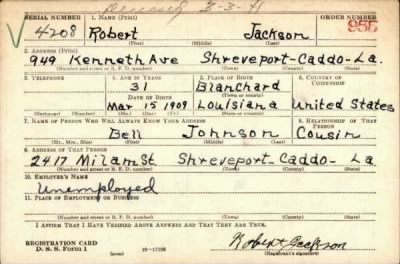 Deceased 3-3-41
SERIAL NUMBER 1. NAME (Print) ORDER NUMBER
4208 Robert Jackson 955
(First) (Middle) (Last)
2. ADDRESS (Print)
949 Kenneth Ave Shreveport-Caddo-La.
(Number and street or R. F. D. number) (Town) (County) (State)
3. TELEPHONE 4. AGE IN YEARS 5. PLACE OF BIRTH 6. COUNTRY OF CITIZENSHIP
31 Blanchard
DATE OF BIRTH (Town or county)
Mar 15 1909 Louisiana United States
(Exchange) (Number) (Mo.) (Day) (Yr.) (State or country)
7. NAME OF PERSON WHO WILL ALWAYS KNOW YOUR ADDRESS 8. RELATIONSHIP OF THAT PERSON
Bell Johnson Cousin
(Mr., Mrs., Miss) (First) (Middle) (Last)
9. ADDRESS OF THAT PERSON
2417 Milam St Shreveport-Caddo-La
(Number and street or R. F. D. number) (Town) (County) (State)
10. EMPLOYER'S NAME
Unemployed
11. PLACE OF EMPLOYMENT OR BUSINESS
(Number and street or R. F. D. number) (Town) (County) (State)
I AFFIRM THAT I HAVE VERIFIED ABOVE ANSWERS AND THAT THEY ARE TRUE.
REGISTRATION CARD
D. S. S. Form 1 (over) 16-17105 Robert Jackson
(Registrant's signature)